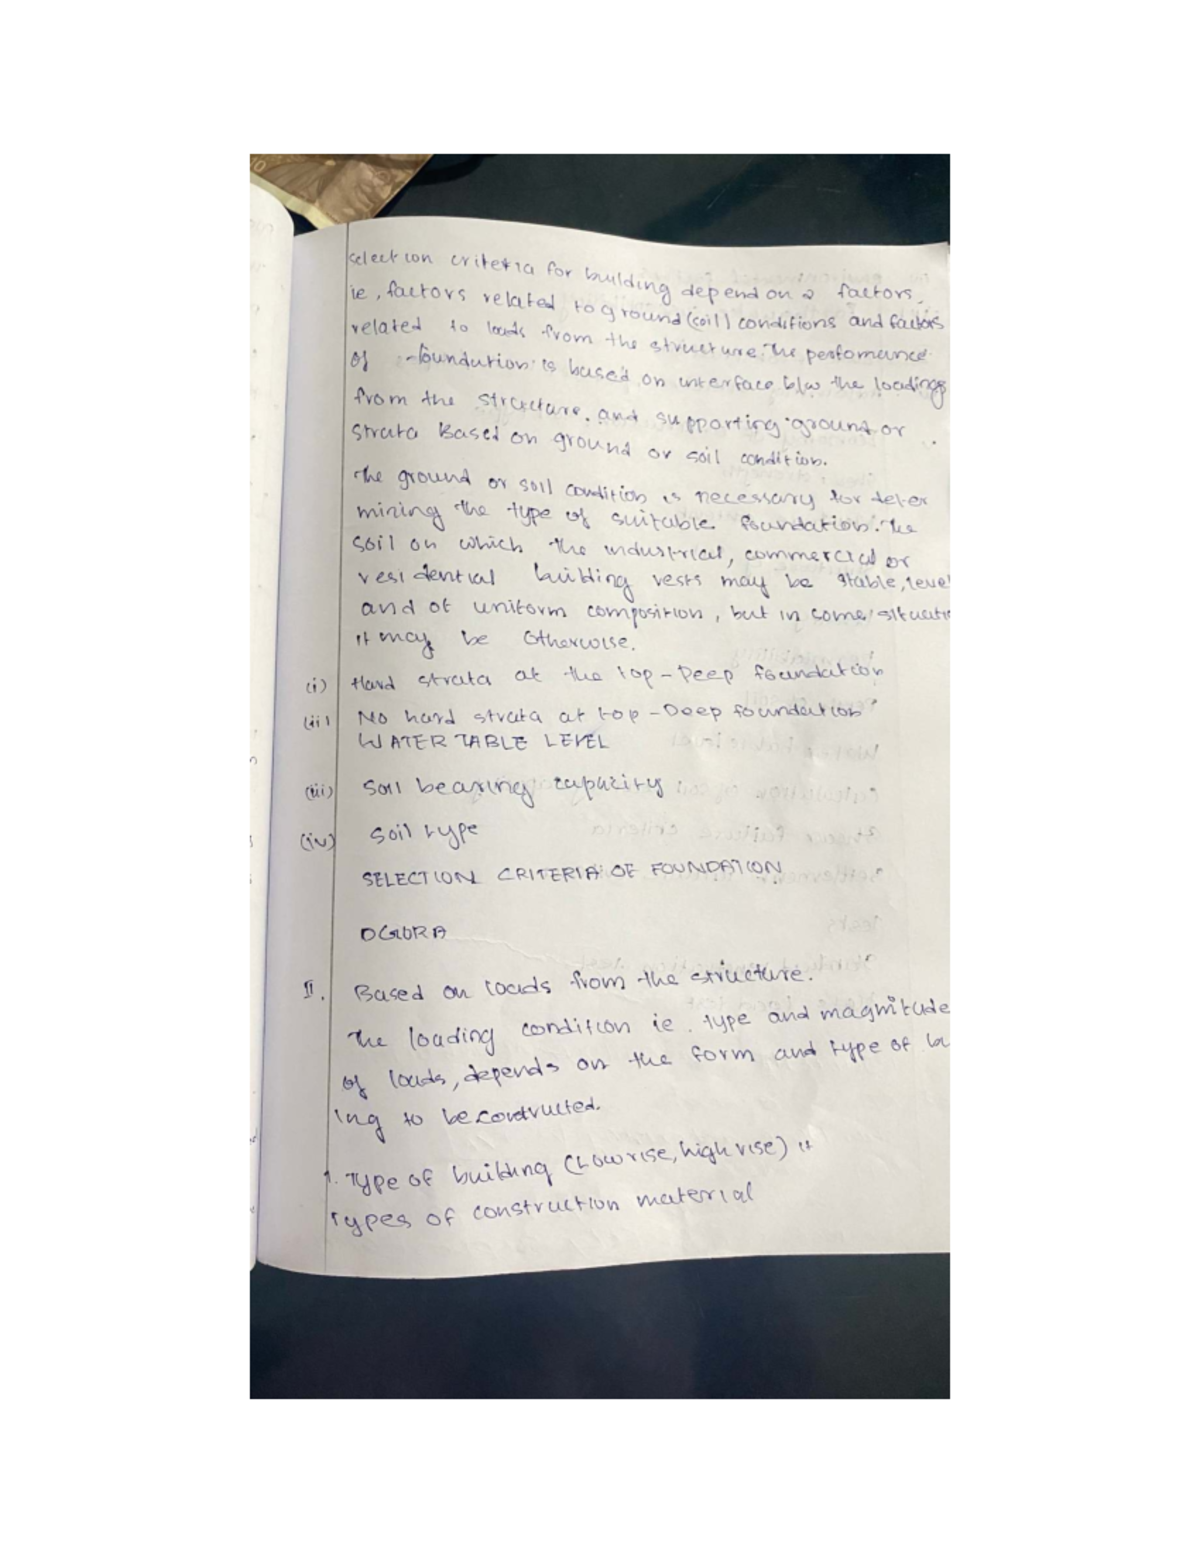 Selection criteria for building depend on 2 factors.
ie, factors related to ground (soil) conditions and factors
related to loads from the structure. The perfomance
of foundation is based on interface b/w the loadings
from the structure. and supporting ground or
strata Based on ground or soil condition.
The ground or soil condition is necessary for deter
mining the type of suitable foundation. The
soil on which the industrial, commercial or
residential building rests may be stable, level
and of uniform composition, but in some situatio
it may be otherwise.
(i) Hard strata at the top - Deep foundation
(ii) No hard strata at top - Deep foundation
WATER TABLE LEVEL
(iii) Soil bearing capacity
(iv) Soil type
SELECTION CRITERIA OF FOUNDATION
II. Based on loads from the structure.
The loading condition ie. type and magnitude
of loads, depends on the form and type of bu
ing to be constructed.
1. Type of building (Low rise, high rise) it
Types of construction material